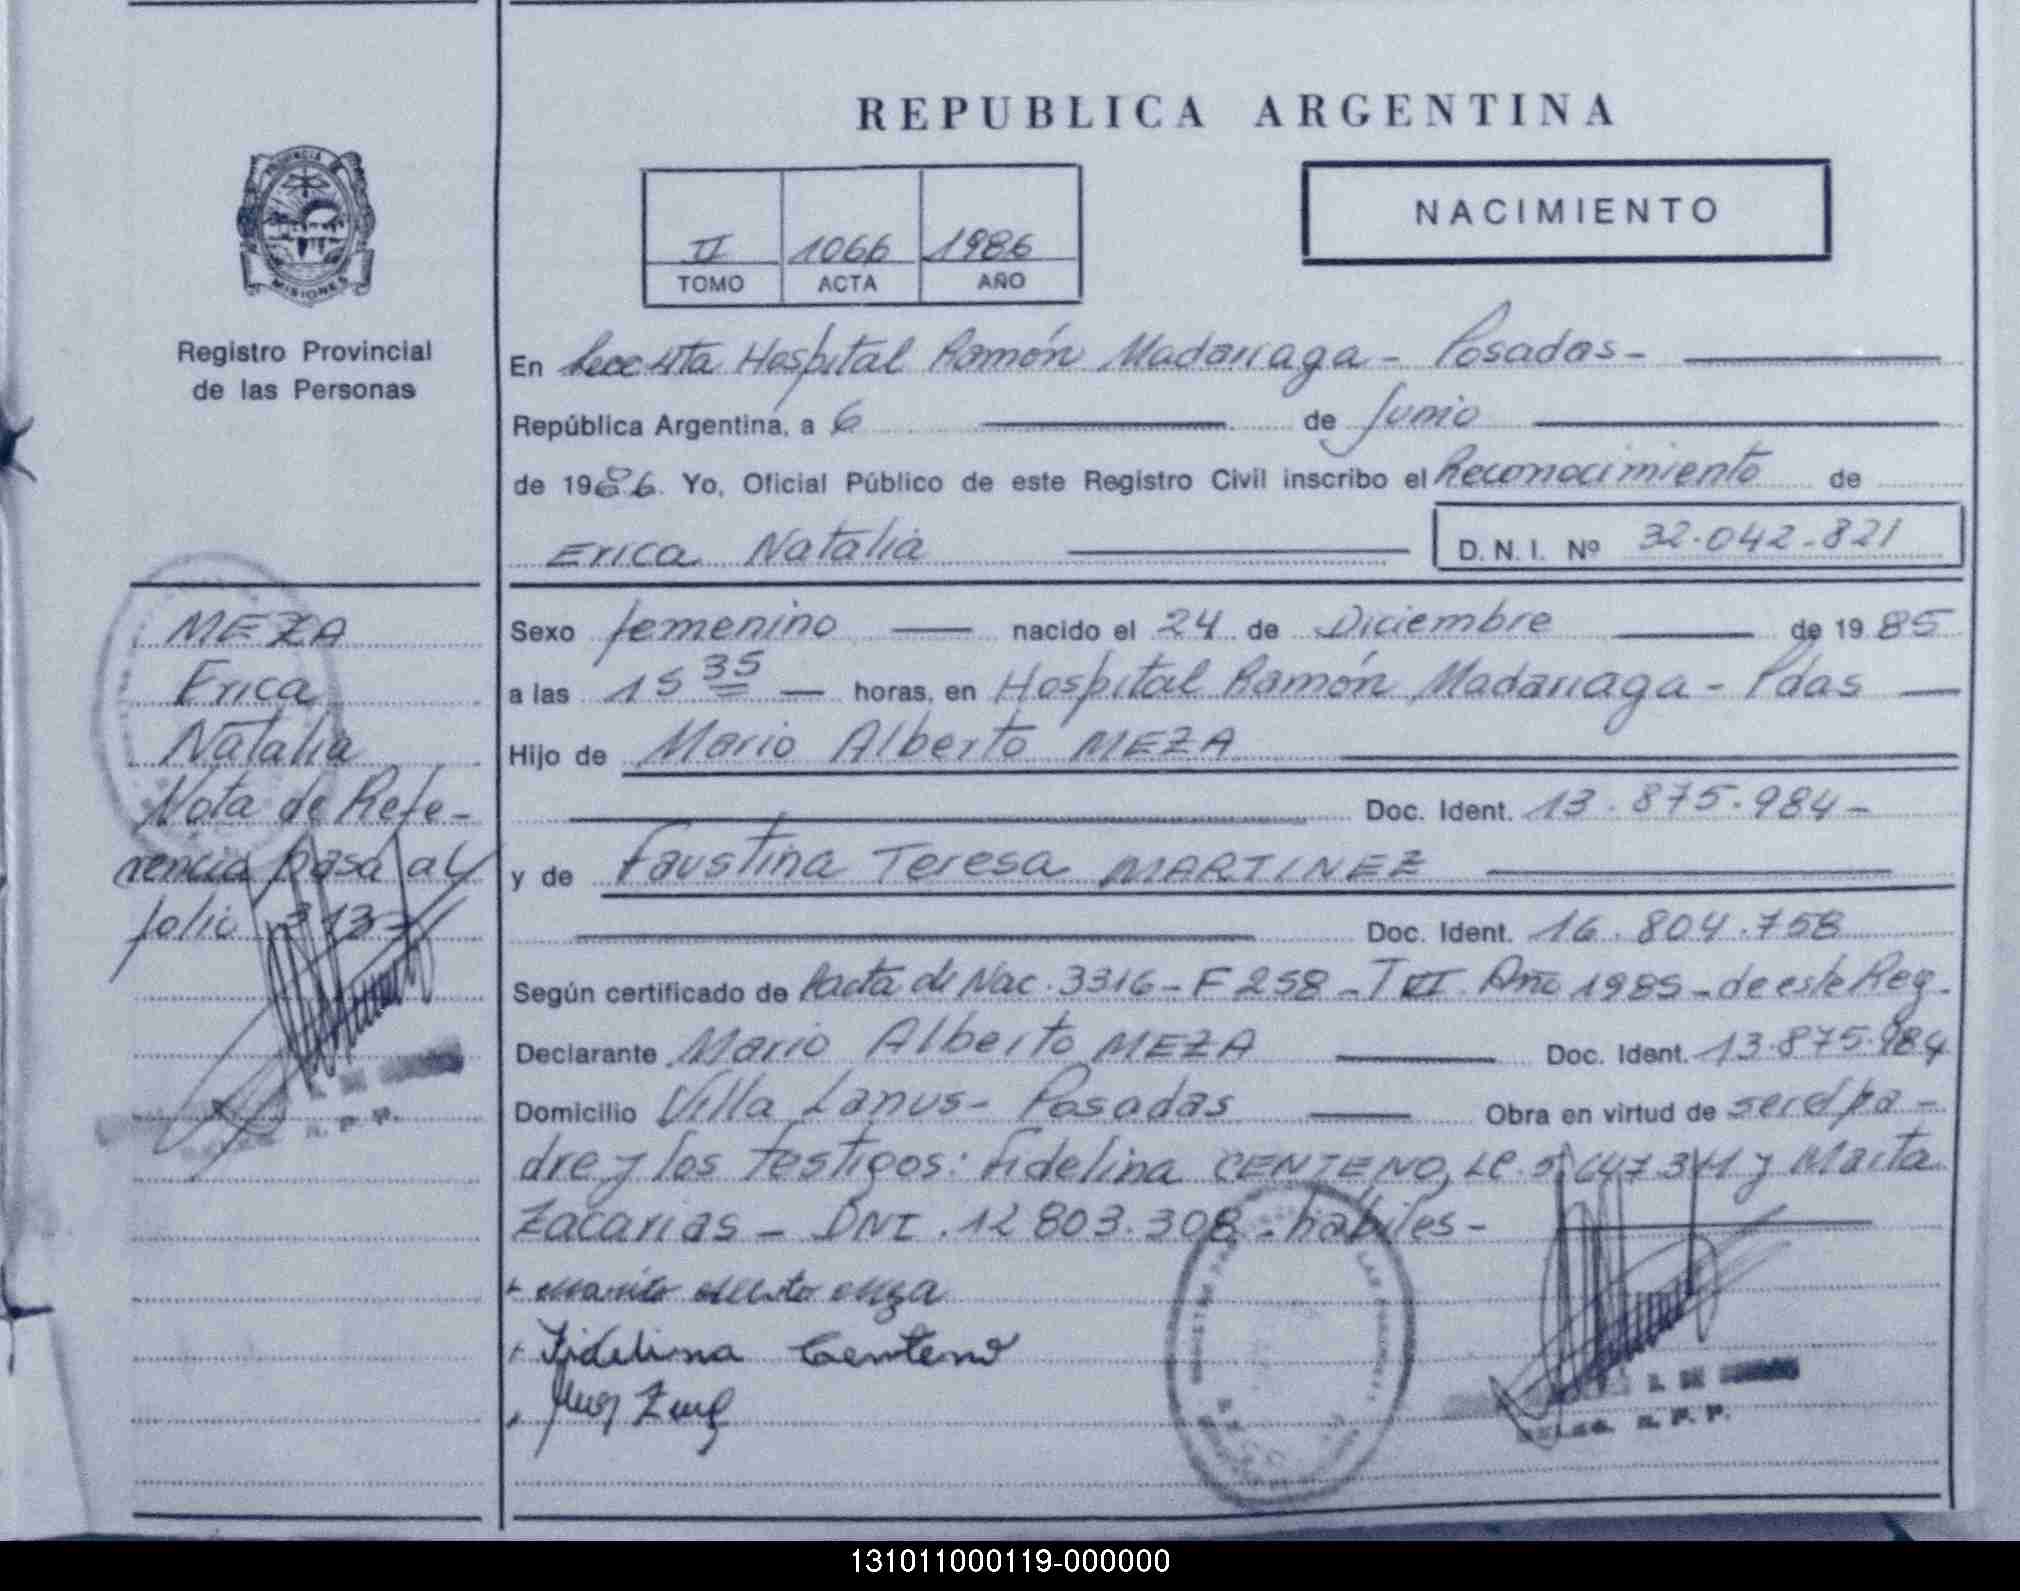 REPUBLICA ARGENTINA
PROVINCIA DE
MISIONES
Registro Provincial
de las Personas
NACIMIENTO
II 1066 1986
TOMO ACTA AÑO
En Hospital Ramón Madariaga - Posadas -
República Argentina, a 6 de Junio
de 1986. Yo, Oficial Público de este Registro Civil inscribo el Reconocimiento de
Erica Natalia D. N. I. Nº 32.042.821
MEZA
Erica
Natalia
Nota de Refe-
rencia pasa al
folio 313-
Sexo femenino nacido el 24 de Diciembre de 1985
a las 15 35 horas, en Hospital Ramón Madariaga - Pdas
Hijo de Mario Alberto MEZA
Doc. Ident. 13.875.984-
y de Faustina Teresa MARTINEZ
Doc. Ident. 16.804.758
Según certificado de Acta de Nac. 3316 - F 258 - T Año 1985 - de este Reg.
Declarante Mario Alberto MEZA Doc. Ident. 13.875.984
Domicilio Villa Lanus - Posadas Obra en virtud de ser el pa-
dre y los testigos: Fidelina CENTENO, LC. y Marta
Zacarias - DNI. 12803.308 - habiles -
Fidelina Centeno
R. P. P.
131011000119-000000